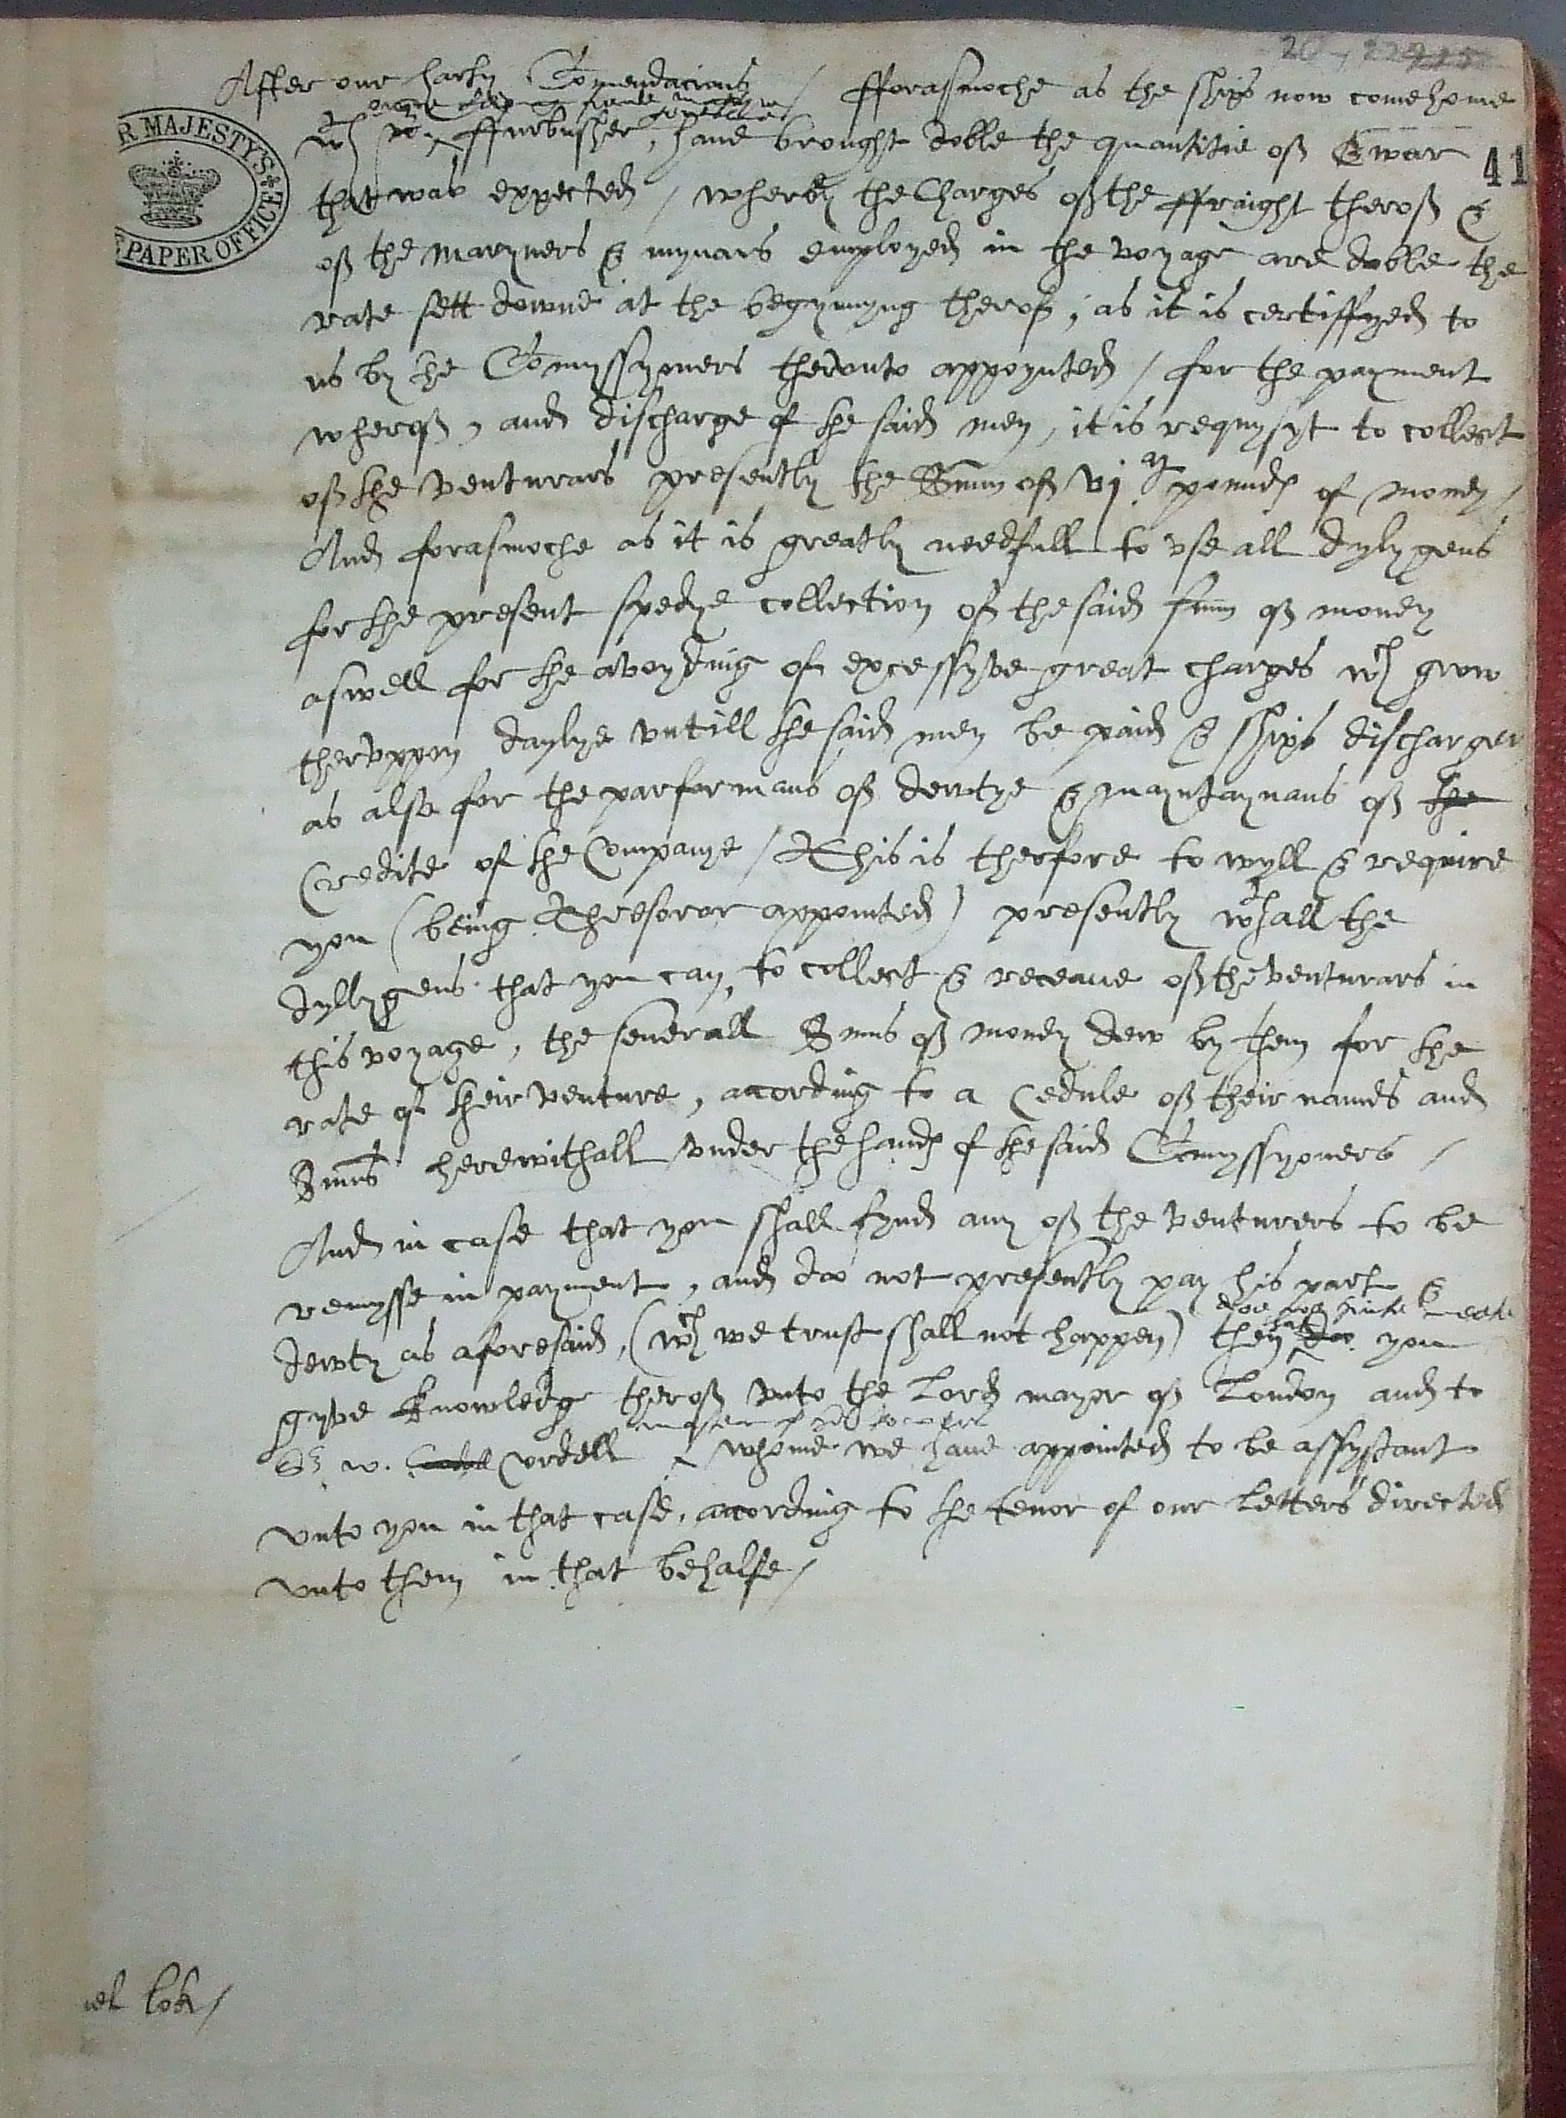 20
41
R MAJESTY'S
PAPER OFFICE
After our harty Comendacions / fforasmoche as the ships now come home
wth ffurbusher, have brought doble the quantitie of Ewar
that was expected / wherby the Charges of the ffraight therof &
of the maryners & mynars employed in the voyage are doble the
rate sett downe at the begynnyng therof, as it is certiffyed to
us by the Comyssyoners therunto appoynted / for the payment
wherof, and discharge of the said men, it is requysyt to collect
of the venturars presently the Summ of vj M pounds of money /
And forasmoche as it is greatly needfull to use all dylygens
for the present spedye collection of the said summ of money
aswell for the avoyding of excessyve great charges wch grow
theruppon daylye untill the said men be paid & ships discharged
as also for the parformans of dewtye & mayntaynans of the
Credite of the Companye / This is therfore to wyll & require
you (being Thresoror appointed) presently wth all the
dyllygens that you can, to collect & receave of the venturars in
this voyage, the severall Sums of money dew by them for the
rate of their venture, acording to a Cedule of their names and
Sums herewithall under the hands of the said Comyssyoners /
And in case that you shall fynd any of the venturers to be
remysse in payment, and doo not presently pay his part &
dewty as aforesaid, (wch we trust shall not happen) then doo you
gyve knowledg therof unto the Lord mayor of London and to
Sr w. Cordell whome we have appointed to be assystant
unto you in that case, acording to the tenor of our letters directed
unto them in that behalfe /
el lok /